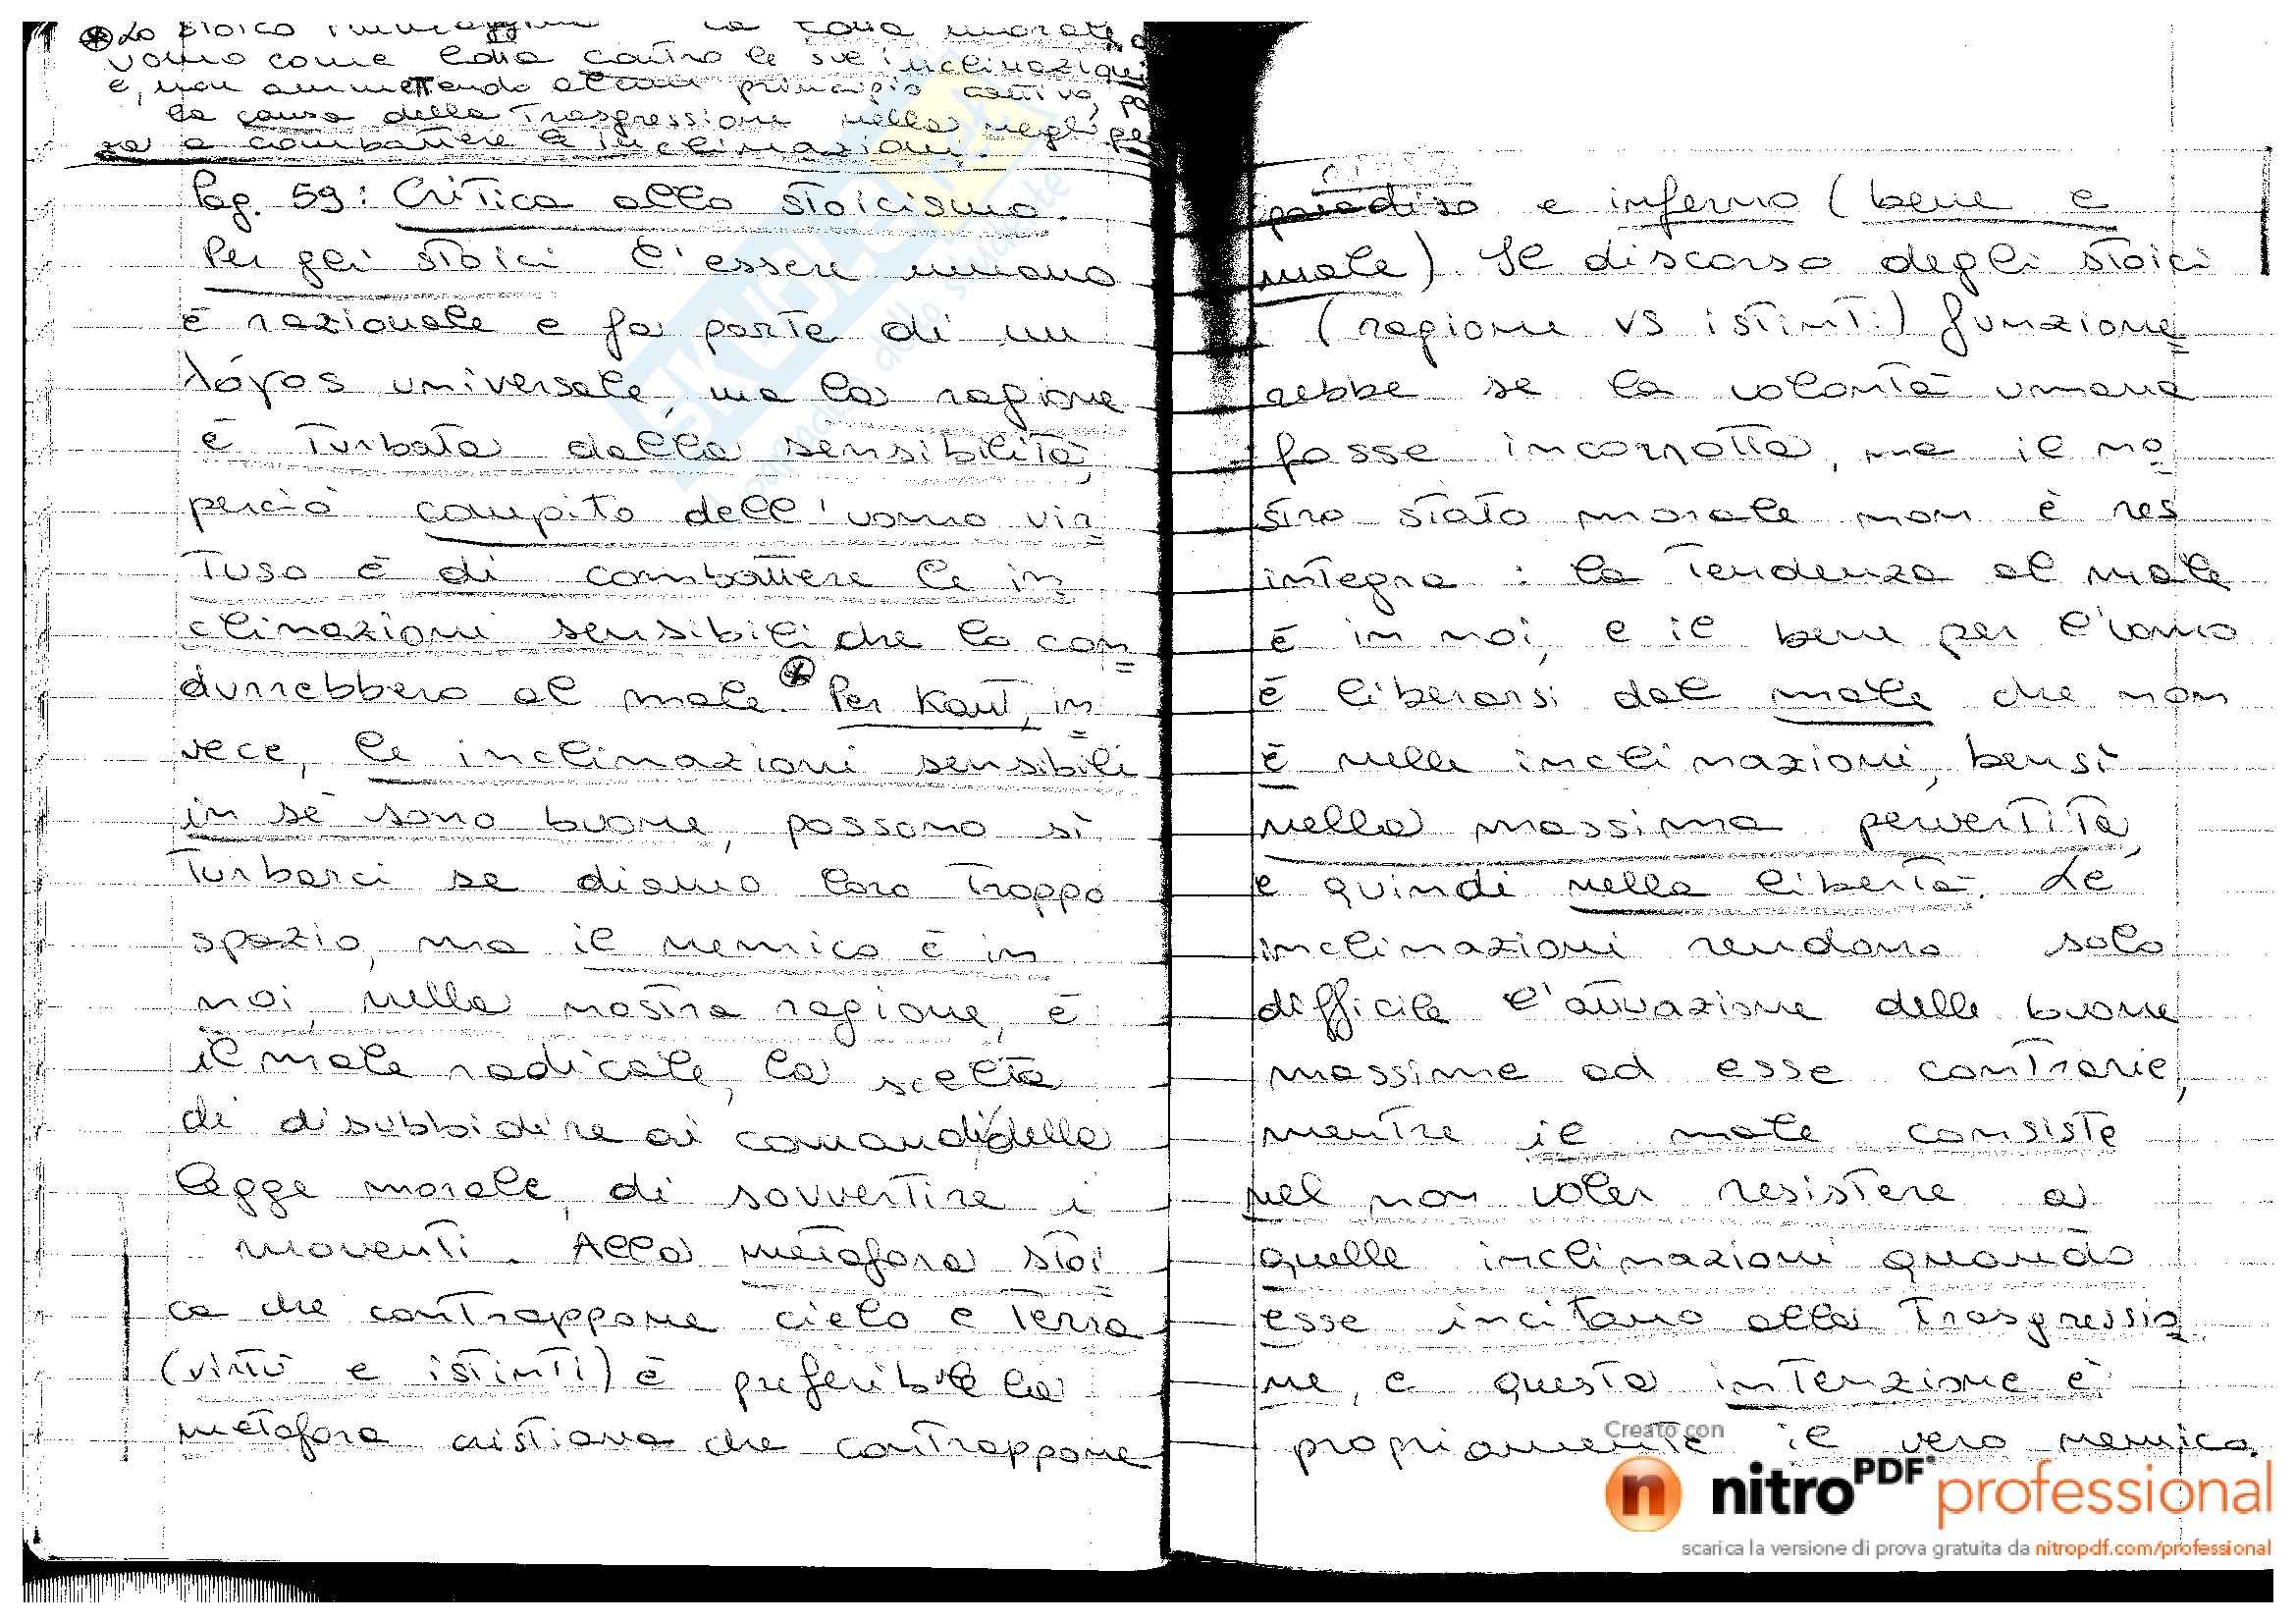 ⊛ Lo stoico immagina la lotta morale
uomo come lotta contro le sue inclinazioni
e, non ammettendo alcun principio cattivo,
la causa della trasgressione nella negli
za a combattere le inclinazioni.
Pag. 59: Critica allo stoicismo.
Per gli stoici l'essere umano
è razionale e fa parte di un
λόγos universale, ma la ragione
è turbata dalla sensibilità,
perciò compito dell'uomo vir=
tuso è di combattere le in=
clinazioni sensibili che lo con=
durrebbero al male.⊛ Per Kant, in=
vece, le inclinazioni sensibili
in sé sono buone, possono sì
turbarci se diamo loro troppo
spazio, ma il nemico è in
noi, nella nostra ragione, è
il male radicale, la scelta
di disubbidire ai comandi della
legge morale, di sovvertire i
moventi. Alla metafora stoi=
ca che contrappone cielo e terra
(virtù e istinti) è preferibile la
metafora cristiana che contrappone
paradiso e inferno (bene e
male). Il discorso degli stoici
(ragione vs istinti) funzione=
rebbe se la volontà umana
fosse incorrotta, ma il no=
stro stato morale non è res
integra: la tendenza al male
è in noi, e il bene per l'uomo
è liberarsi dal male che non
è nelle inclinazioni, bensì
nella massima pervertita,
e quindi nella libertà. Le
inclinazioni rendono solo
difficile l'attuazione delle buone
massime ad esse contrarie,
mentre il male consiste
nel non voler resistere a
quelle inclinazioni quando
esse incitano alla trasgressio=
ne, e questa intenzione è
propriamente il vero nemico.
Creato con
nitroPDF professional
scarica la versione di prova gratuita da nitropdf.com/professional